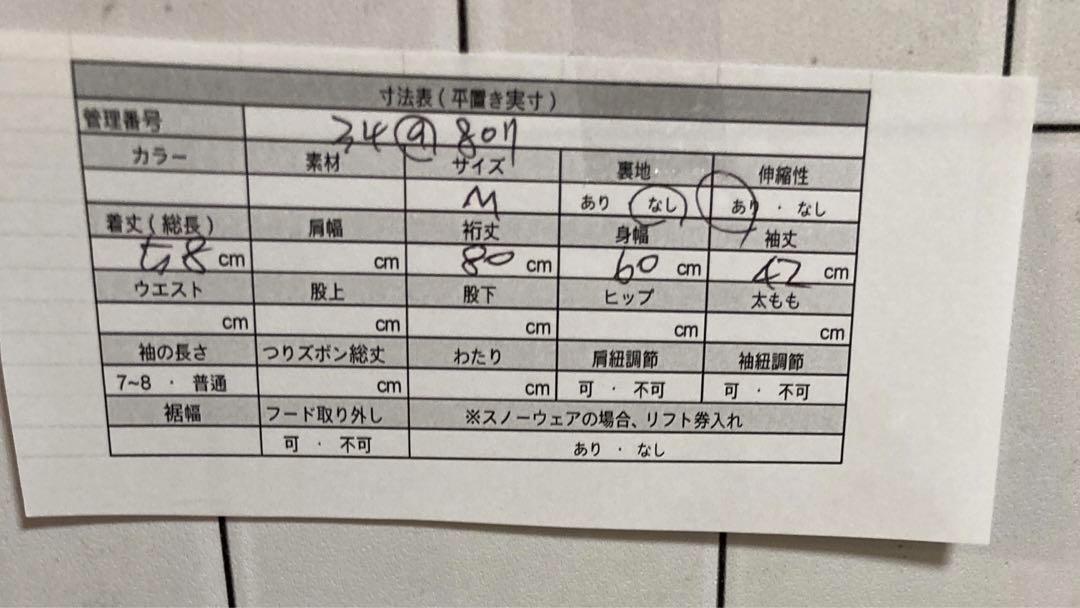 寸法表(平置き実寸)
管理番号 34 a 807
カラー 素材 サイズ 裏地 伸縮性
M あり なし あり ・ なし
着丈(総長) 肩幅 裄丈 身幅 袖丈
cm cm 80 cm 60 cm 42 cm
ウエスト 股上 股下 ヒップ 太もも
cm cm cm cm cm
袖の長さ つりズボン総丈 わたり 肩紐調節 袖紐調節
7~8 ・ 普通 cm cm 可 ・ 不可 可 ・ 不可
裾幅 フード取り外し ※スノーウェアの場合、リフト券入れ
可 ・ 不可 あり ・ なし